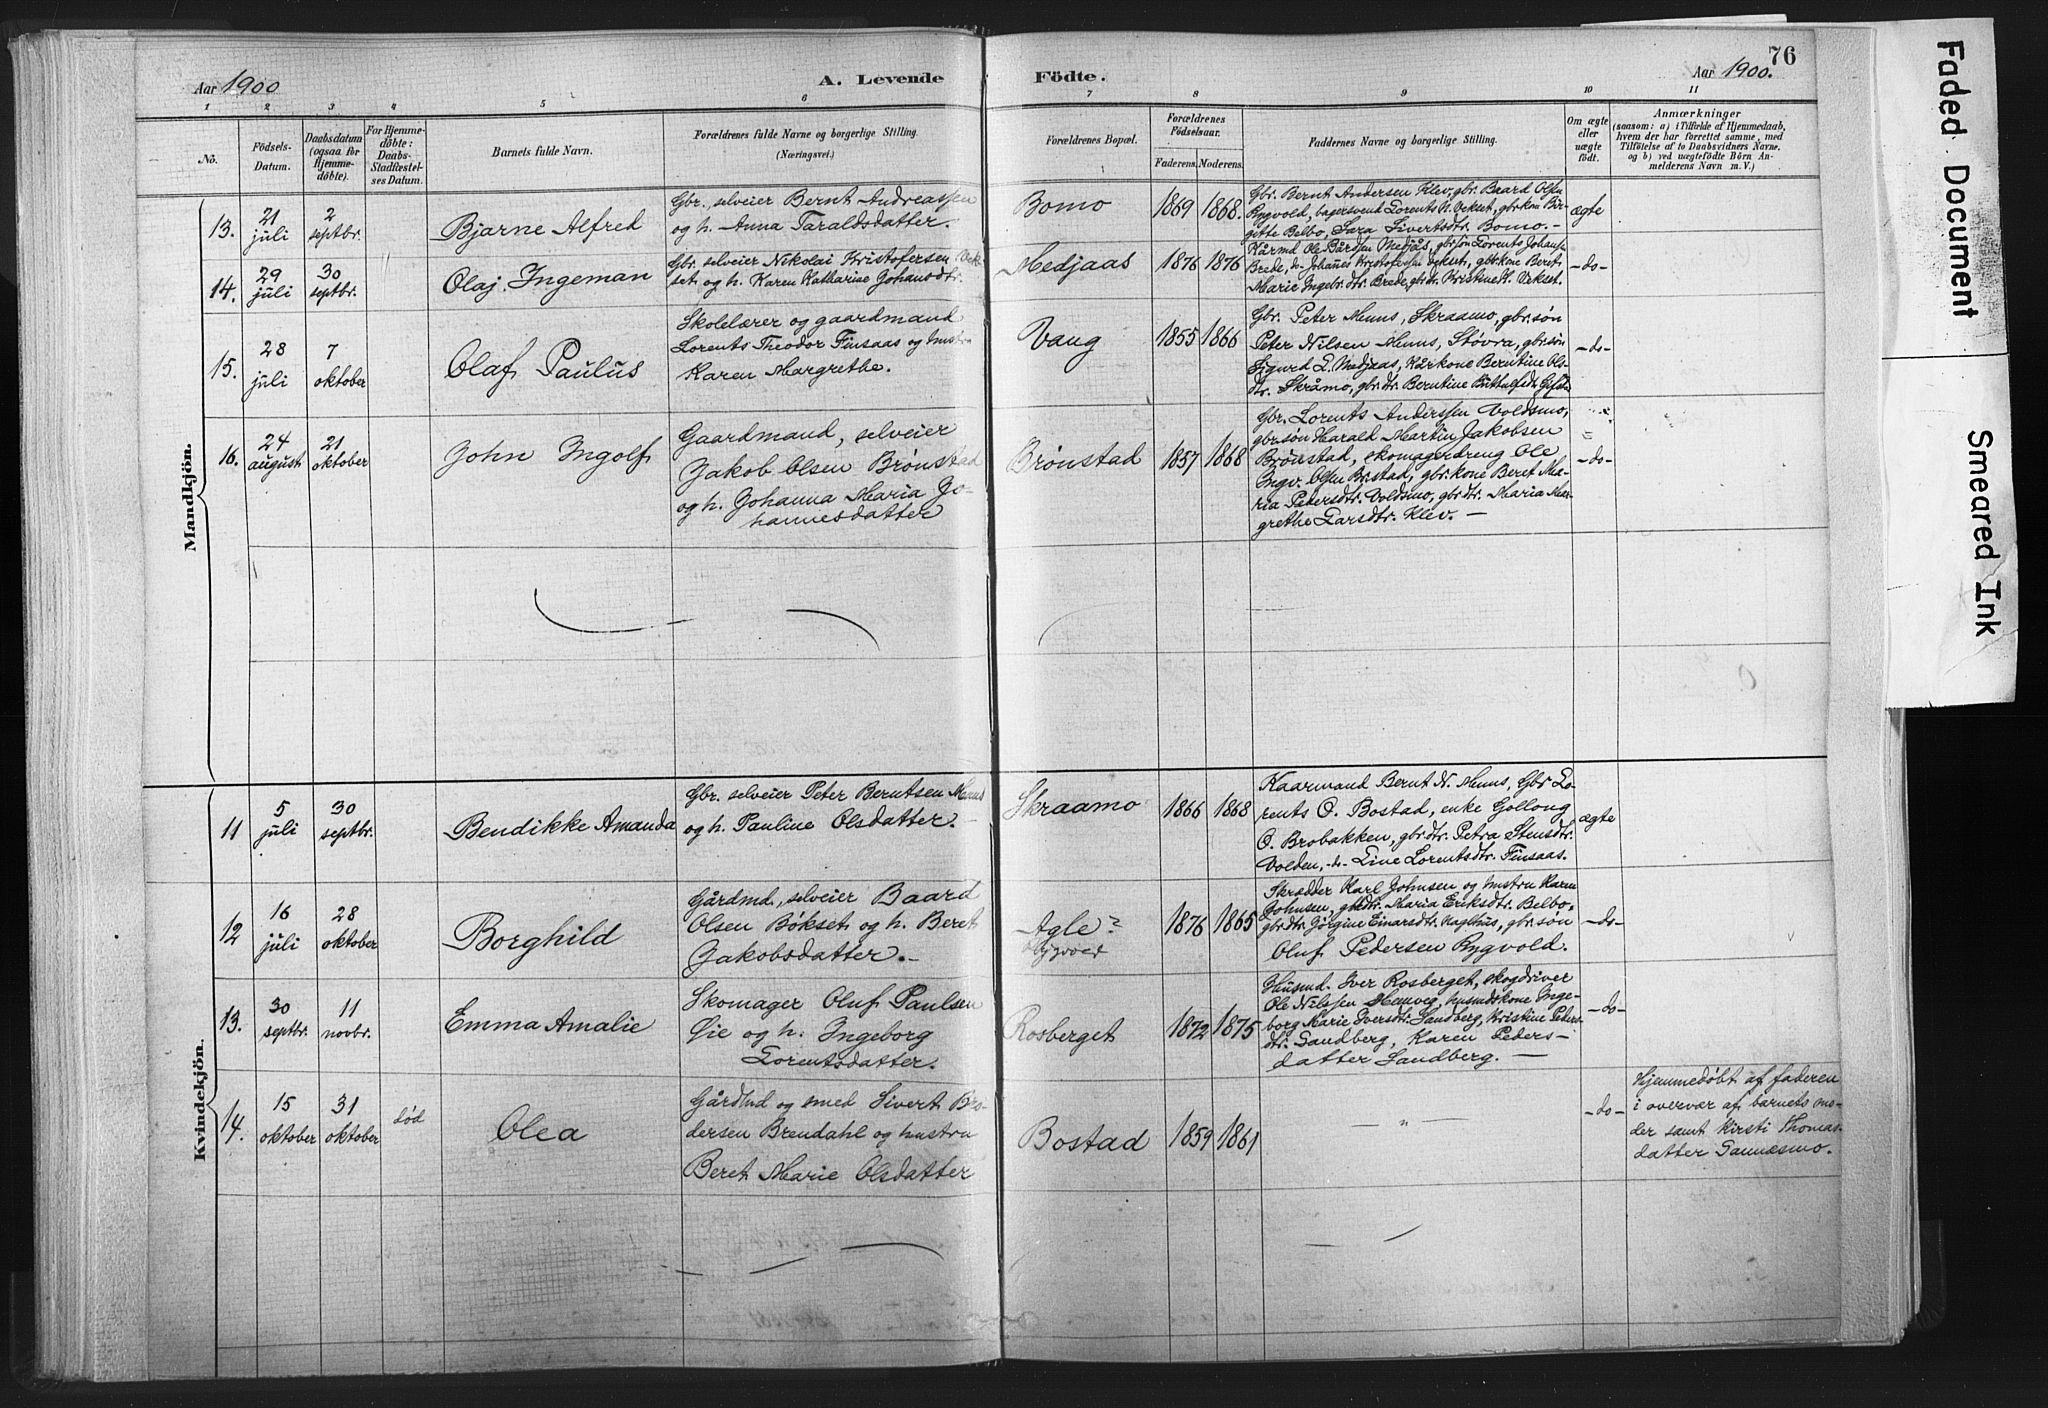 76
Aar 1900
A. Levende Födte.
Aar 1900.
1 2 3 4 5 6 7 8 9 10 11
No.
Födsels-
Datum.
Daabsdatum
(ogsaa for
Hjemme-
döbte).
For Hjemme-
döbte:
Daabs-
Stadfæstel-
ses Datum.
Barnets fulde Navn.
Forældrenes fulde Navne og borgerlige Stilling.
(Næringsvei.)
Forældrenes Bopæl.
Forældrenes
Födselsaar.
Faderens. Moderens.
Faddernes Navne og borgerlige Stilling.
Om ægte
eller
uægte
födt.
Anmærkninger
(saasom: a) i Tilfælde af Hjemmedaab,
hvem der har forrettet samme, med
Tilföielse af to Daabsvidners Navne,
og b) ved uægtefödte Börn An-
melderens Navn m. V.)
Mandkjön.
13.
21
juli
2
septbr.
Bjarne Alfred
Gbr., selveier Bernt Andreassen
og h. Anna Taraldsdatter.
Bomo
1869 1868.
Gbr. Bernt Andersen Klev, gbr. Baard Olsen
Rygvold, bagersvend Lorents N. Vekset, gbr.kone Bir-
gitte Belbo, Sara Sivertsdtr. Bomo.-
ægte
14.
29
juli
30
septbr.
Olaf Ingeman
Gbr. selveier Nikolai Kristofersen Vek-
set og h. Karen Katharine Johansdtr.
Medjaas
1876 1876
Kårmd Ole Bårdsen Medjås, gbr.søn Lorents Johans.
Brede, do Johannes Kristofersen Vekset, gbr.kone Beret
Marie Ingebr.dtr. Brede, gbr.dtr. Kristine K. Vekset.
-do-
15.
28
juli
7
oktober
Olaf Paulus
Skolelærer og gaardmand
Lorents Theodor Finsaas og hustru
Karen Margrethe.
Vang
1855 1866
Gbr. Peter Muus, Skraamo, gbr.søn
Peter Nilsen Muus, Støvra, gbr.søn
Sigurd L. Medjaas, Kårkone Berntine Ols-
dtr. Skråmo, gbr.dtr. Berntine
-do-
16.
24
august
21
oktober
John Ingolf
Gaardmand, selveier
Jakob Olsen Brønstad
og h. Johanna Maria Jo-
hannesdatter
Brønstad
1857 1868
Gbr. Lorents Anderssen Voldsmo,
gbr.søn Harald Martin Jakobsen
Brønstad, skomagerdreng Ole
Ingv. Olsen Br.stad, gbr.kone Beret Ma-
ria Pedersdtr. Voldsmo, gbr.dtr. Maria Mar-
grethe Larsdtr. Klev.-
-do-
Kvindekjön.
11
5
juli
30
septbr.
Bendikke Amanda
Gbr. selveier Peter Berntsen Muus
og h. Pauline Olsdatter.-
Skraamo
1866 1868
Kaarmand Bernt N. Muus, Gbr Lo-
rents O. Bostad, enke Gollong
O. Brobakken, gbr.dtr. Petra Stensdtr.
Volden, -do- Line Lorentsdtr. Finsaas.
ægte
12
16
juli
28
oktober
Borghild
Gårdmd., selveier Baard
Olsen Bøkset og h. Beret
Jakobsdatter.-
Agle?
1876 1865
Skrædder Karl Johnsen og hustru Karen
Johnsen, gbr.dtr. Maria Eriksdtr. Belbo,
gbr.dtr. Jørgine Einarsdtr. Naghus, gbr.søn
Oluf Pedersen Rygvold.
-do-
13.
30
septbr.
11
novbr.
Emma Amalie
Skomager Oluf Paulsen
Lie og h. Ingeborg
Lorentsdatter.
Rosberget
1872 1875
Husmd. Iver Rosberget, skogdriver
Ole Nilssen Homveg, husmdskone Inge-
borg Marie Iversdtr. Sandberg, Kristine Peders-
dtr. Sandberg, Karen Peders-
datter Sandberg.-
-do-
14.
15
oktober
31
oktober
død
Olea
Gårdmd og smed Sivert
dersen Brendahl og hustru
Beret Marie Olsdatter
Bostad
1859 1861
- " -
-do-
Hjemmedøbt af faderen
i overvær af barnets mo-
der samt Kirsti Thomas-
datter Sannesmo.
Faded Document
Smeared Ink